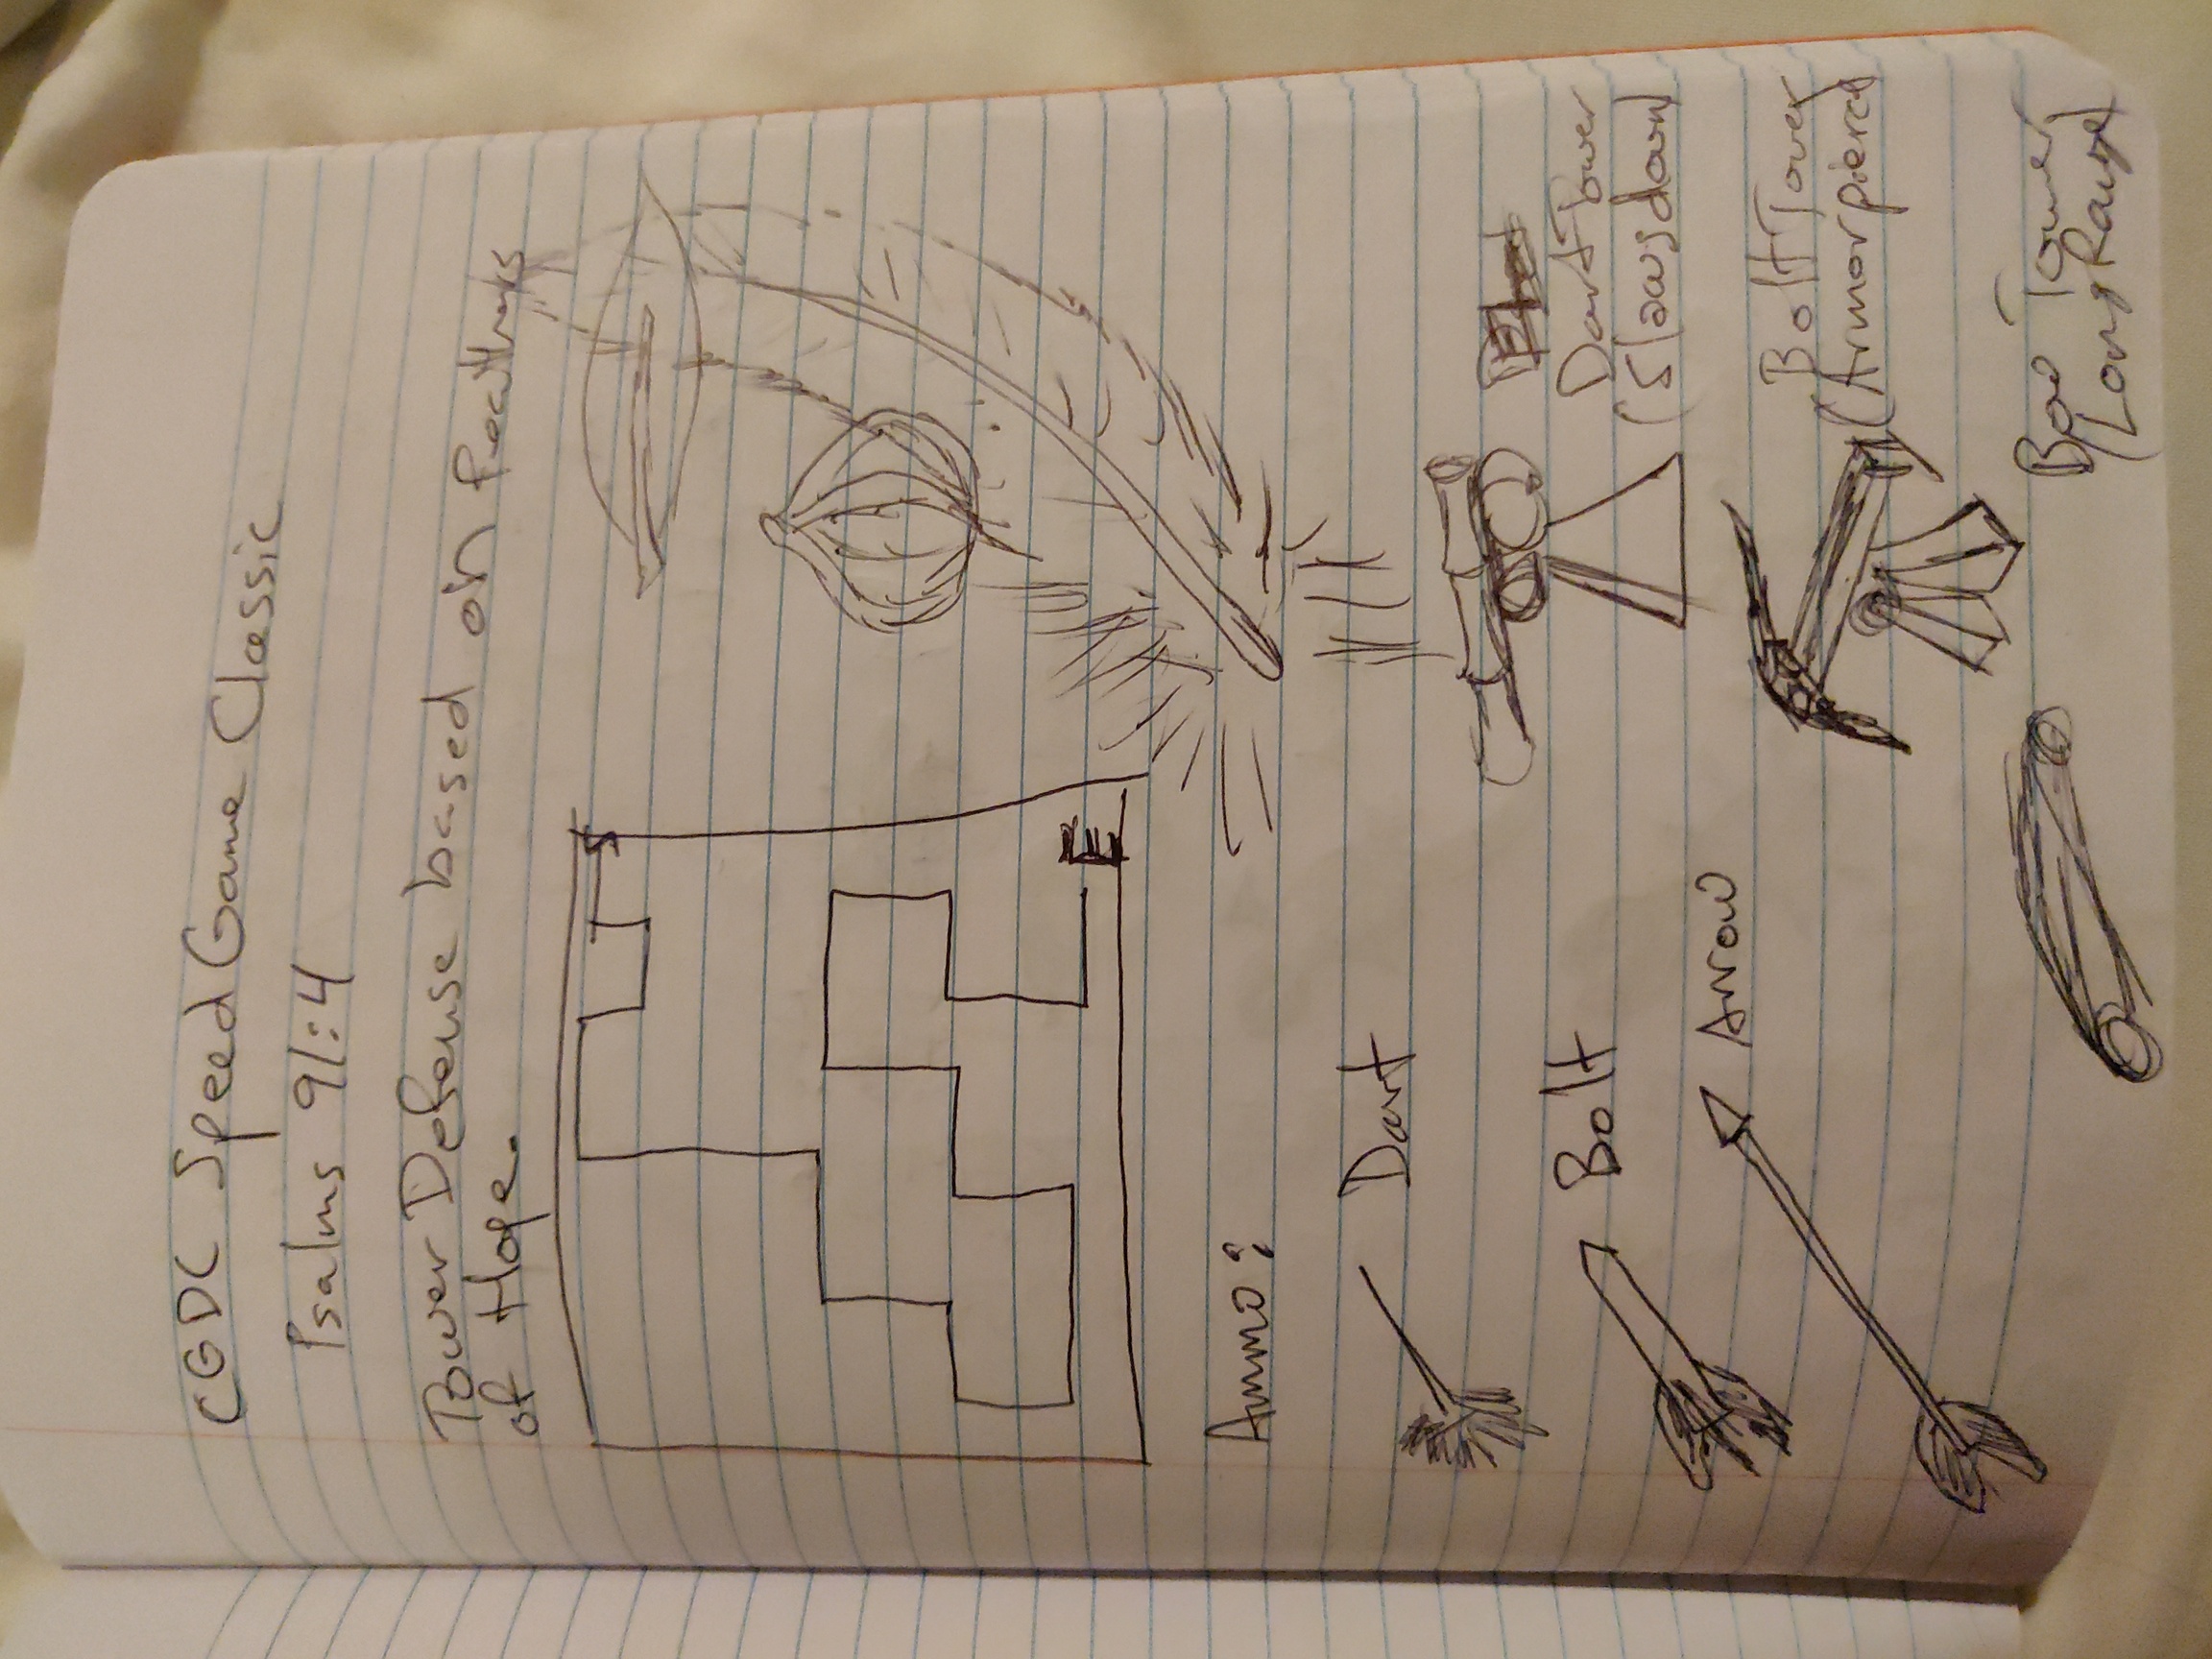 CGDC Speed Game Classic
Psalms 91:4
Tower Defense based on feathers
of Hope.
S
E
Ammo:
Dart
Dart Tower
(Slows down)
Bolt
Bolt Tower
(Armor pierce)
Arrow
Bow Tower
(Long Range)